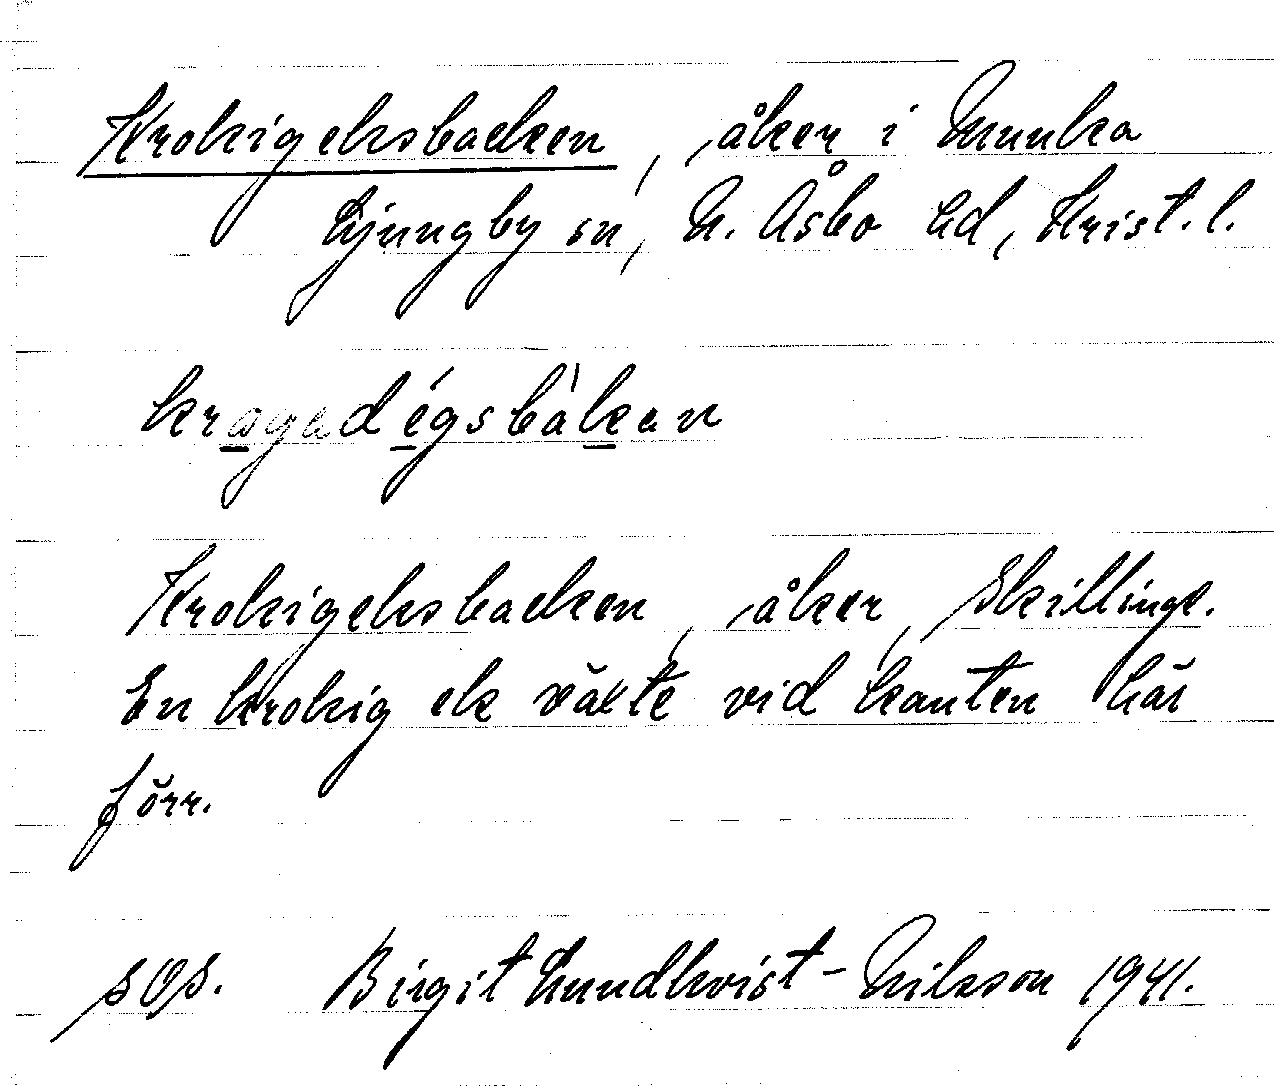 Krokigeksbacken, åker i Munka
Ljungby sn, N. Åsbo hd, Krist. l.
kragedégsbàkan
Krokigeksbacken, åker, Skillinge.
En krokig ek växte vid kanten här
förr.
s. 8.
Birgit Lundkvist-Nilsson 1941.